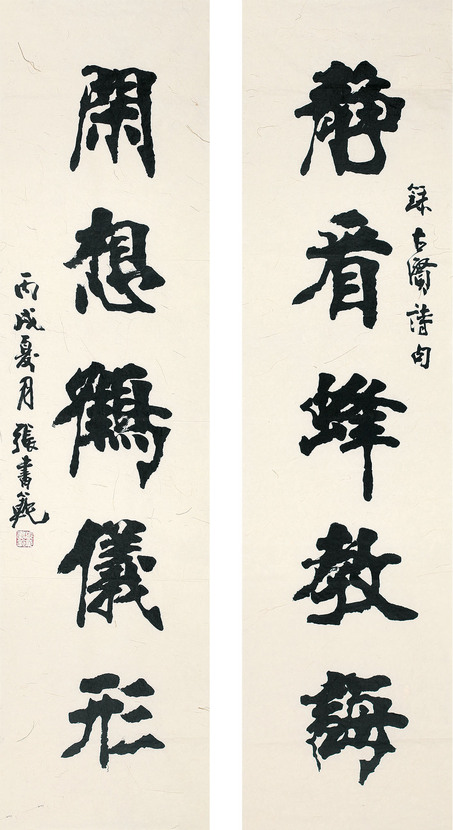 静看蜂教誨
録古賢詩句
閑想鶴儀形
丙戌夏月張書範